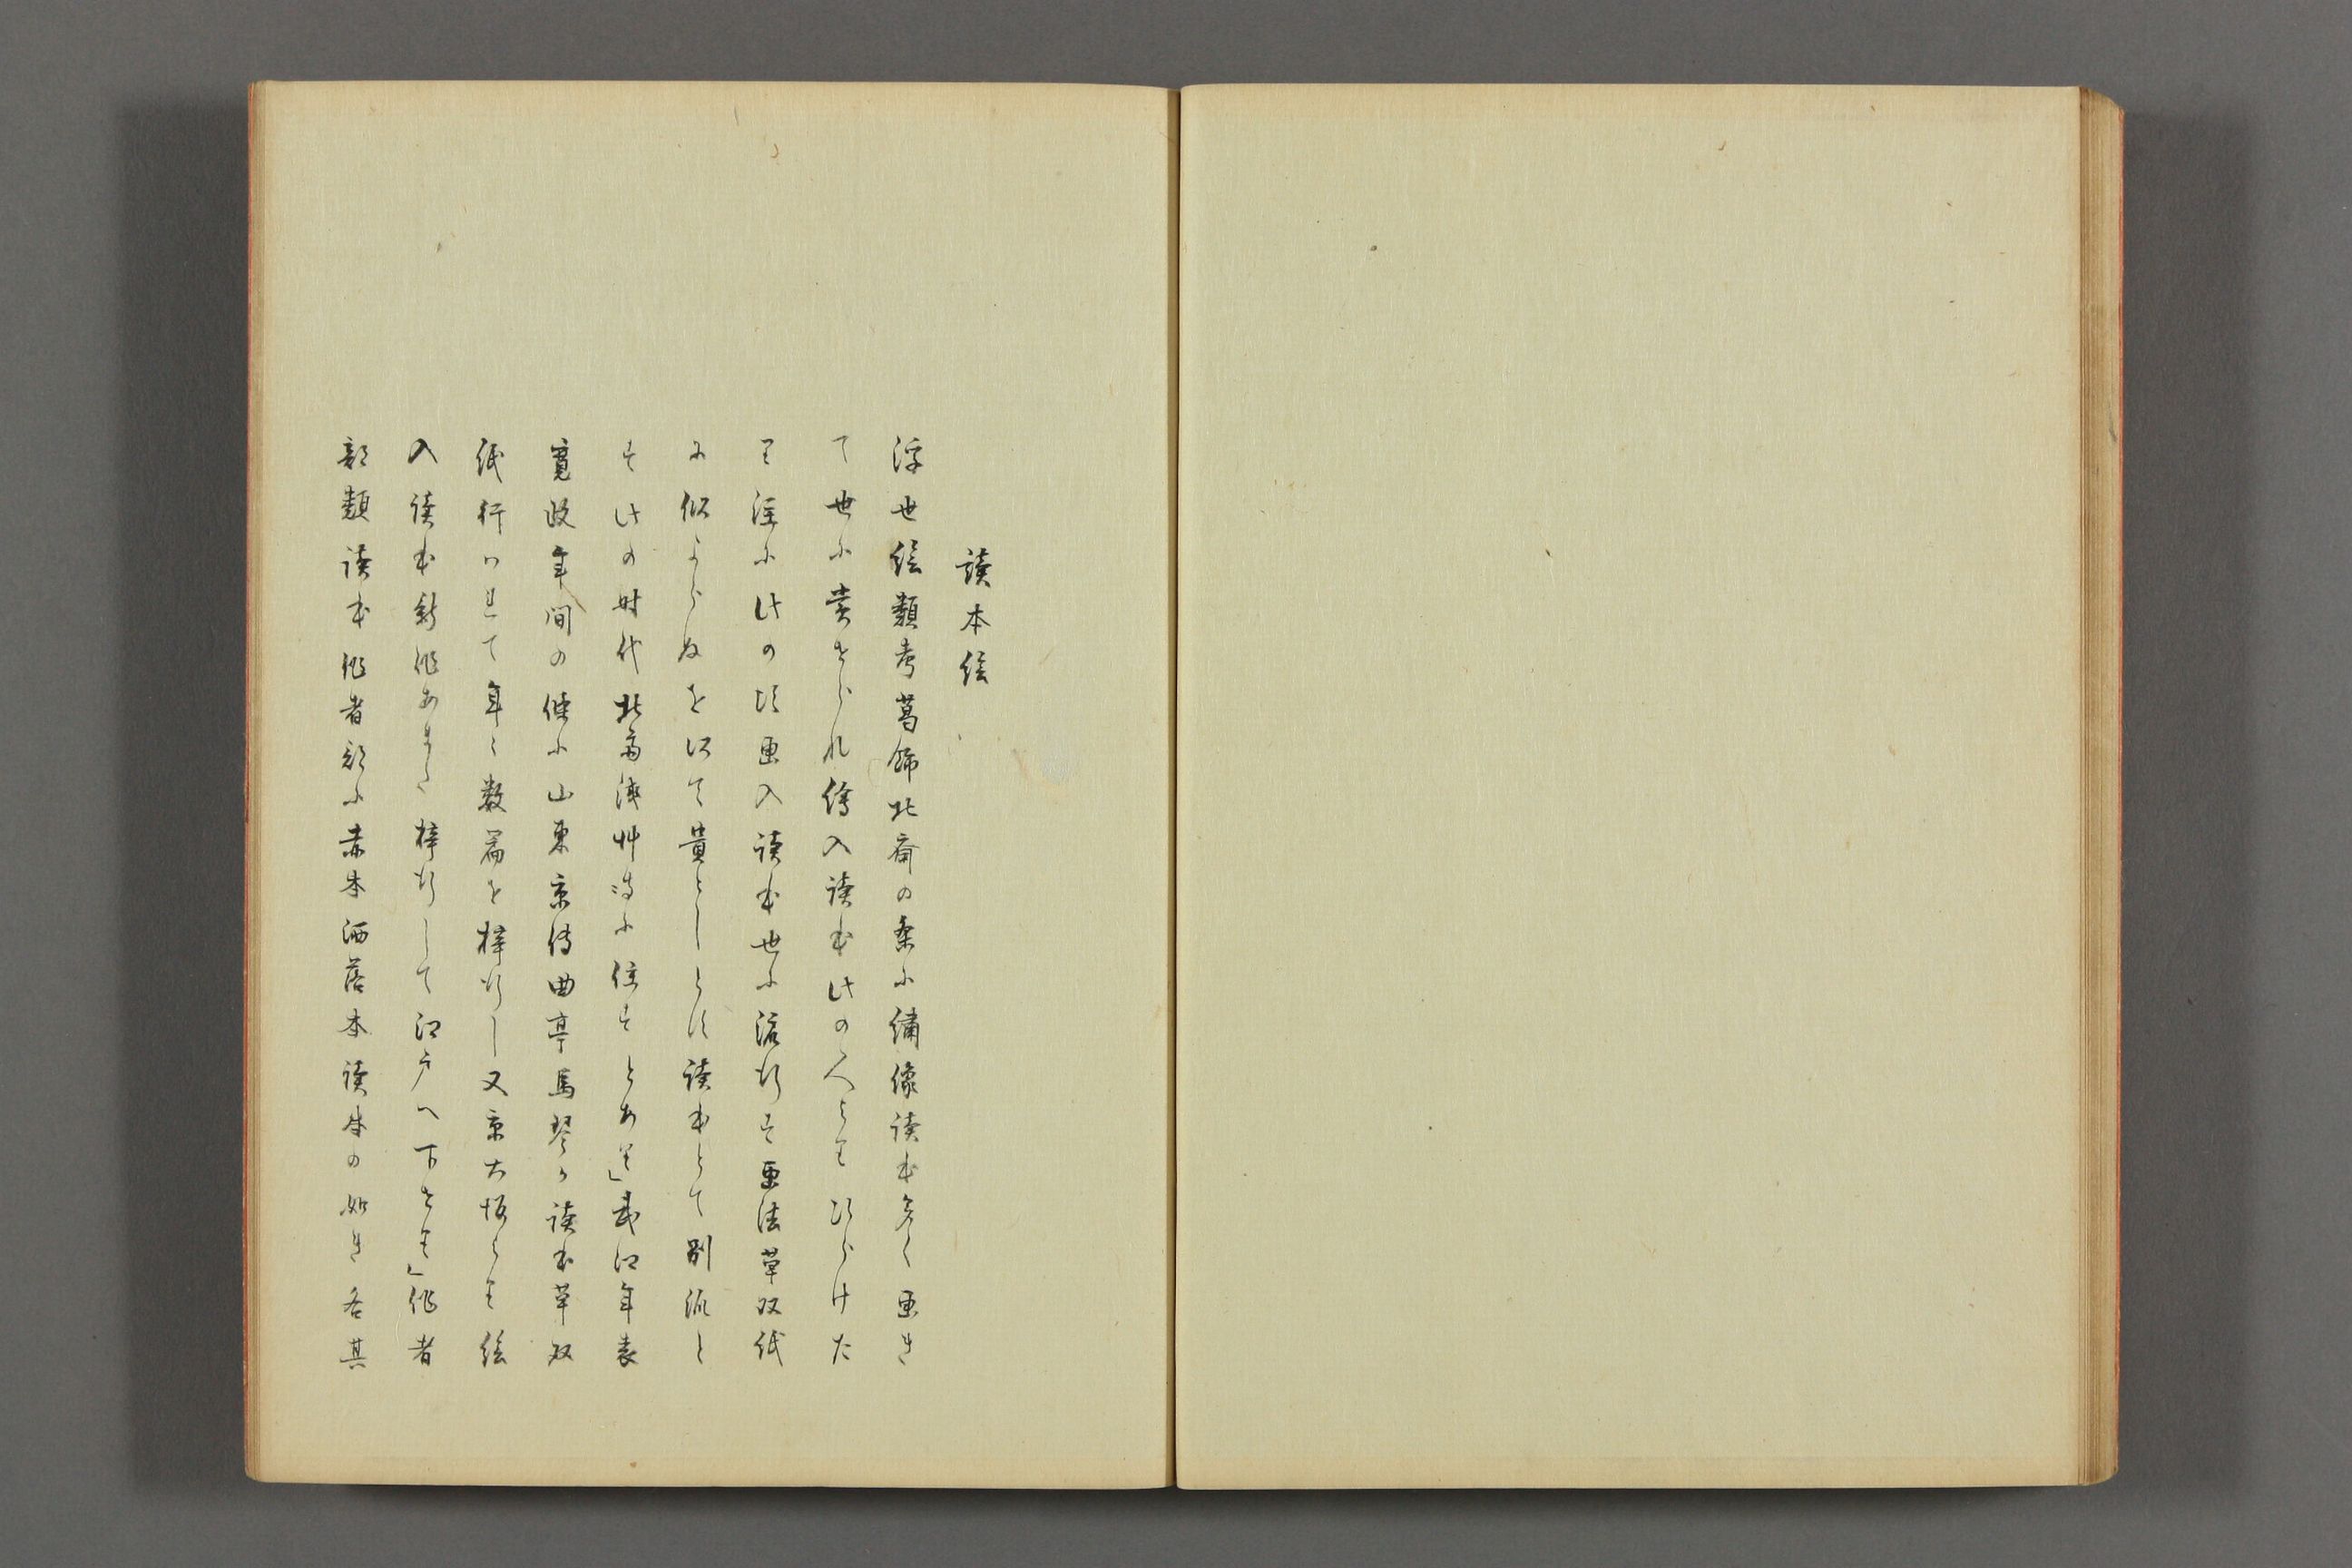 読本絵
浮世絵類考葛飾北斎の条に繡像読本多く画き
て世に賞せられ繪入読本此の人よりひらけた
り注に此の頃画入読本世に流行す画法草双紙
に似よらぬを以て貴としとは読本とて別派と
す此の時代北斎浅艸辺に住すとあり」武江年表
寛政年間の條に山東京伝曲亭馬琴か読本草双
紙行ハれて年々数篇を梓行し又京大坂よりも絵
入読本新作あまた梓行して江戸へ下せり」作者
部類読本作者部に赤本洒落本読本の如き各其